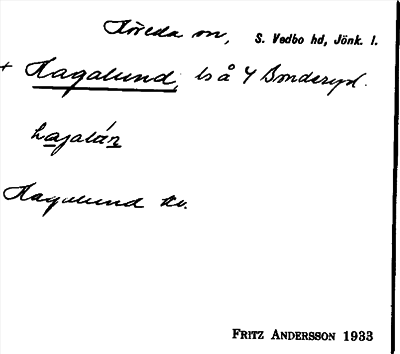 Höreda sn, S. Vedbo hd, Jönk. l.
+ Hagalund, ls å Y Bonderyd.
hagalún
Hagalund tv.
FRITZ ANDERSSON 1933